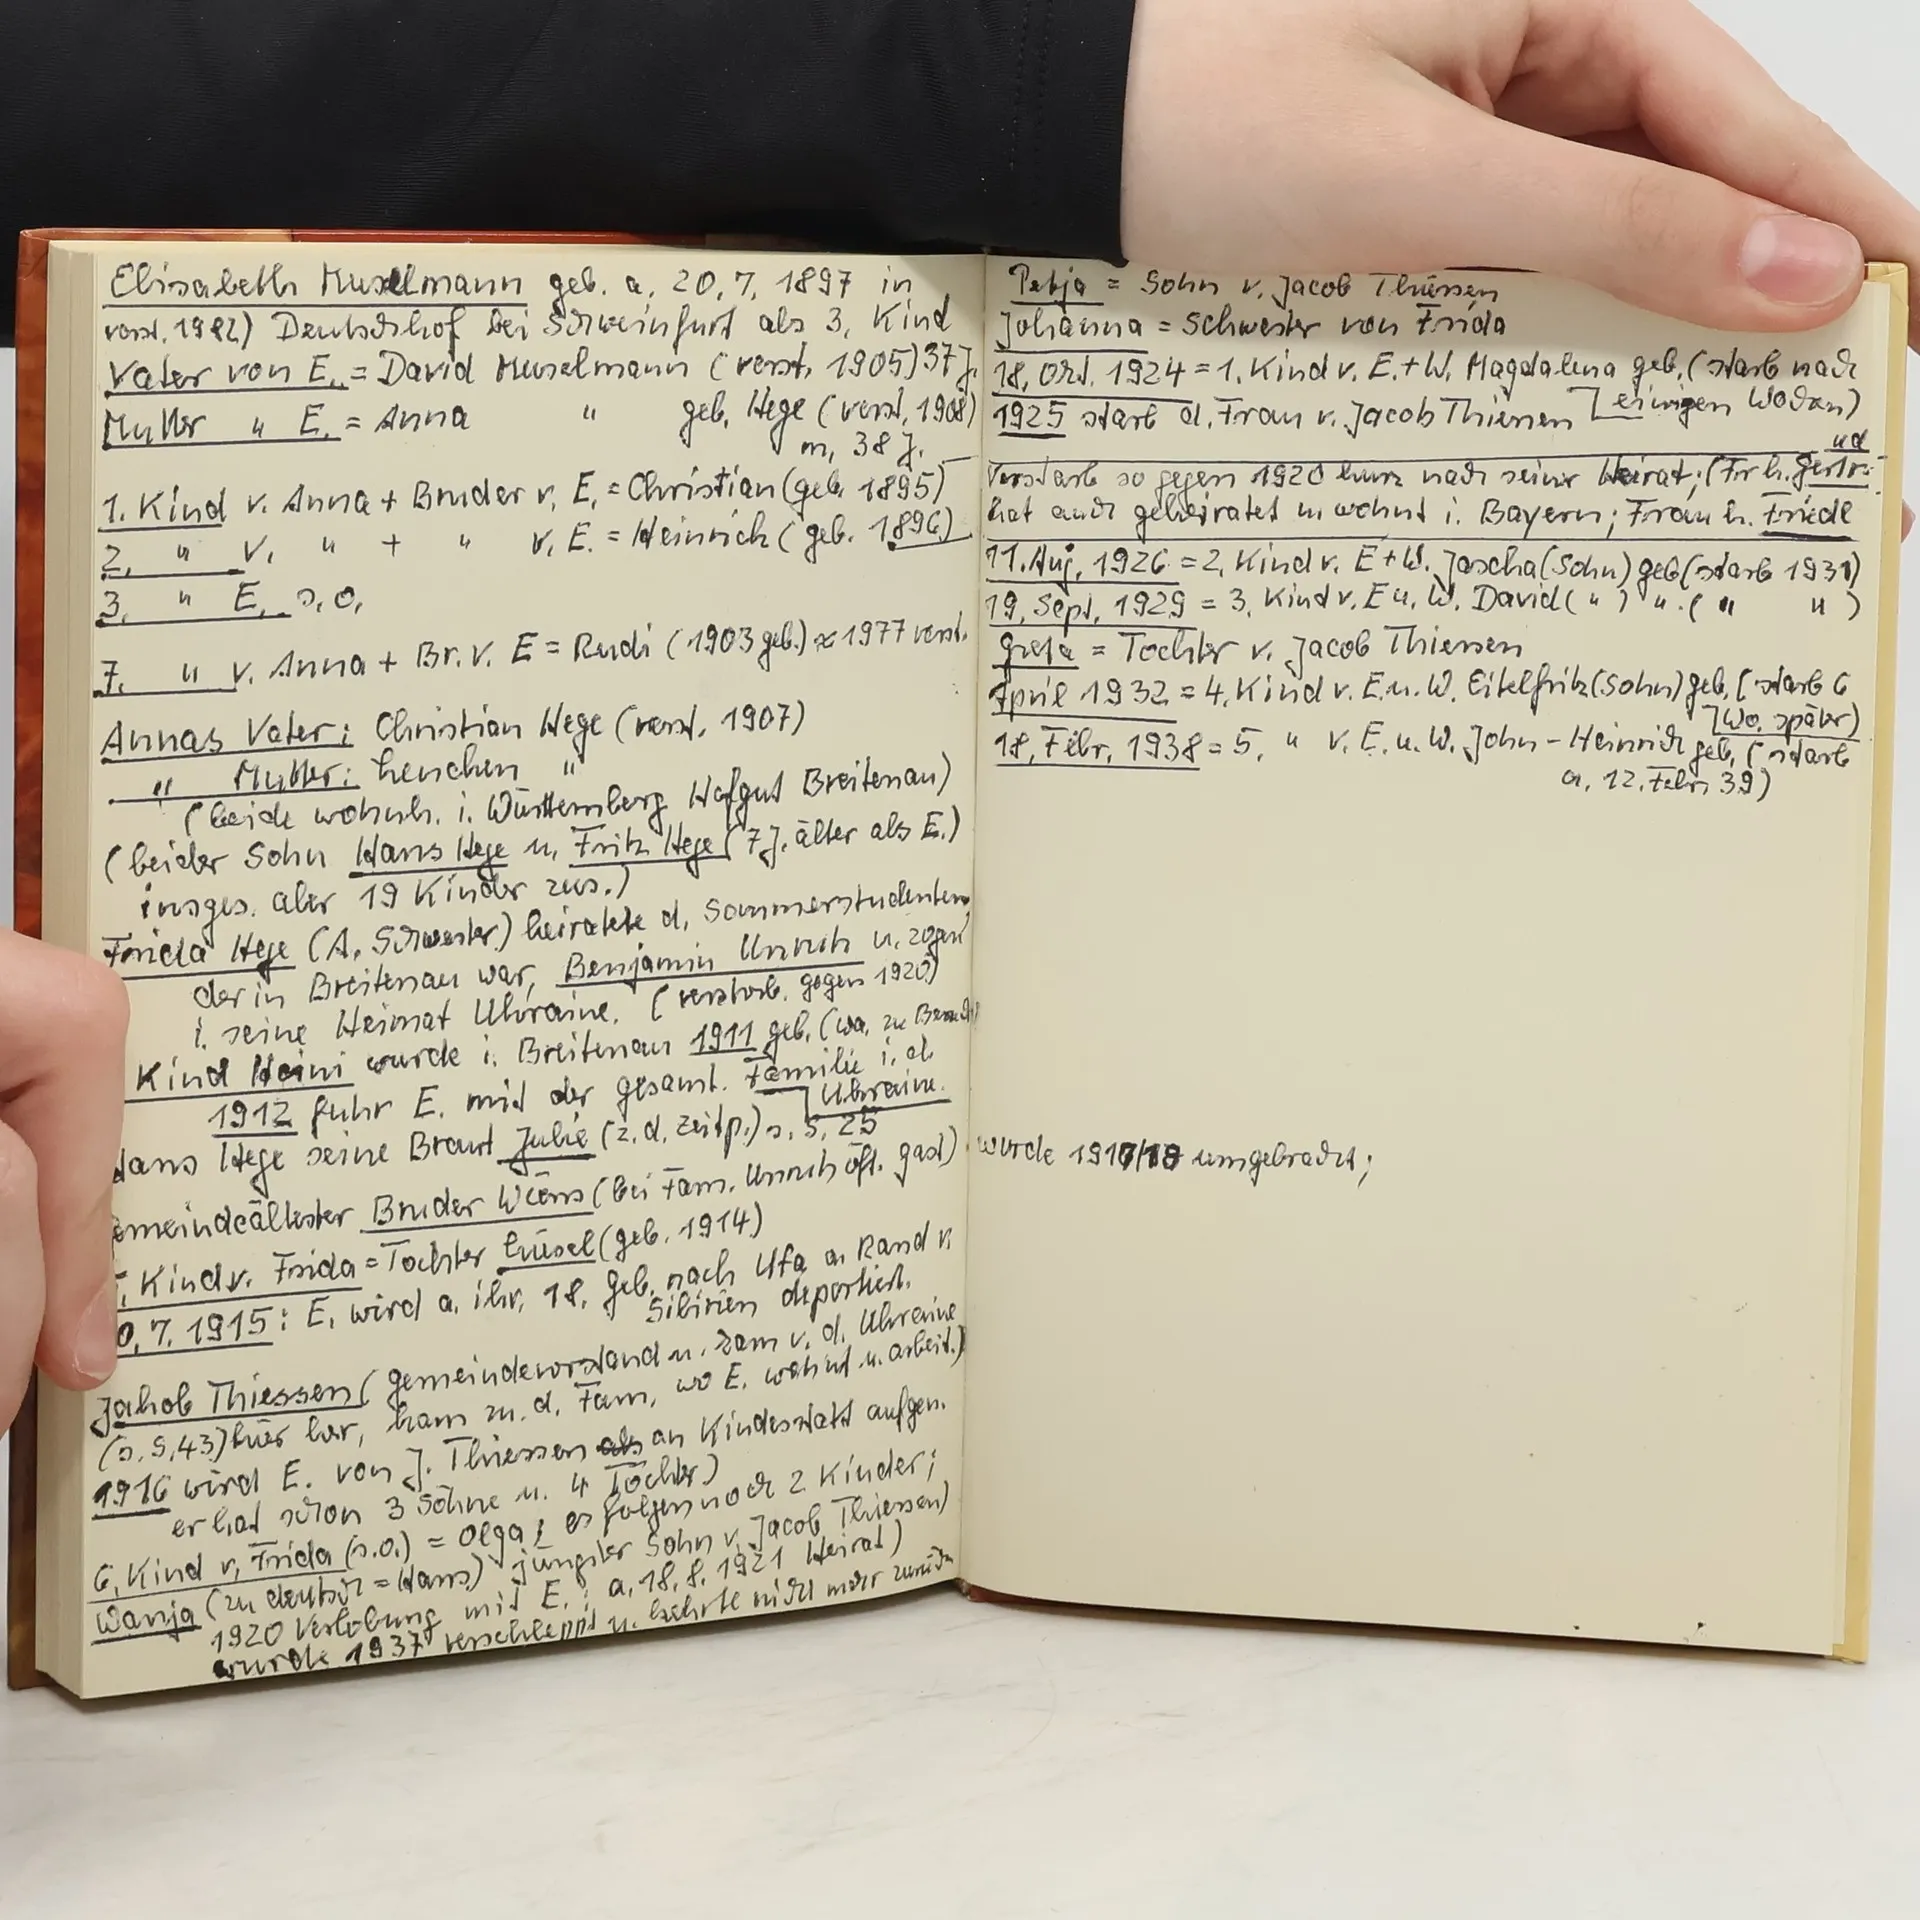 Elisabeth Muselmann geb. a. 20. 7. 1897 in
verst. 1982) Deutschhof bei Schweinfurt als 3. Kind
Vater von E. = David Muselmann (verst. 1905) 37 J.
Mutter " E. = Anna " geb. Hege (verst. 1908)
m. 38 J.
1. Kind v. Anna + Bruder v. E. = Christian (geb. 1895)
2. " v. " + " v. E. = Heinrich (geb. 1896)
3. " E. s. o.
7. " v. Anna + Br. v. E = Rudi (1903 geb.) 1977 verst.
Annas Vater: Christian Hege (verst. 1907)
" Mutter: Lenchen "
(beide wohnh. i. Württemberg Hofgut Breitenau)
(beider Sohn Hans Hege u. Fritz Hege (7 J. älter als E.)
insges. aber 19 Kinder zus.)
Frida Hege (A. Schwester) heiratete d. Sommerstudenten,
der in Breitenau war, Benjamin Unruh u. zogen
i. seine Heimat Ukraine. (verstorb. gegen 1920)
Kind Heini wurde i. Breitenau 1911 geb. (wa. zu
1912 fuhr E. mit der gesamt. Familie i. d.
Ukraine.
Hans Hege seine Braut Julie (z. d. Zeitp.) s. S. 25
emeindeältester Bruder Wiens (bei Fam. Unruh öft. Gast) wurde 1917/18 umgebracht;
Kind v. Frida = Tochter Liesel (geb. 1914)
0. 7. 1915: E. wird a. ihr. 18. Geb. nach Ufa a. Rand v.
Sibirien deportiert.
Jakob Thiessen (Gemeindevorstand u. kam v. d. Ukraine
(s. S. 43) hier her, kam zu d. Fam. wo E. wohnt u. arbeit.)
1916 wird E. von J. Thiessen an Kindesstatt aufgen.
er hat schon 3 Söhne u. 4 Töchter)
6. Kind v. Frida (s.o.) = Olga; es folgen noch 2 Kinder;
Wanja (zu deutsch = Hans) jüngster Sohn v. Jacob Thiessen)
1920 Verlobung mit E.; a. 18. 8. 1921 Heirat)
wurde 1937 verschleppt u. kehrte nicht mehr zurück
Petja = Sohn v. Jacob Thiessen
Johanna = Schwester von Frida
18. Okt. 1924 = 1. Kind v. E. + W. Magdalena geb. (starb nach
einigen Wochen)
1925 starb d. Frau v. Jacob Thiessen
verstarb so gegen 1920 kurz nach seiner Heirat; (Fr h. Gertr.
ud
hat auch geheiratet u. wohnt i. Bayern; Frau h. Friedl
11. Aug. 1926 = 2. Kind v. E + W. Jascha (Sohn) geb (starb 1931)
19. Sept. 1929 = 3. Kind v. E u. W. David ( " ) " ( " " )
Greta = Tochter v. Jacob Thiessen
April 1932 = 4. Kind v. E. u. W. Eitelfritz (Sohn) geb. (starb 6
Wo. später)
18. Febr. 1938 = 5. " v. E. u. W. John-Heinrich geb. (starb
a. 12. Febr. 39)